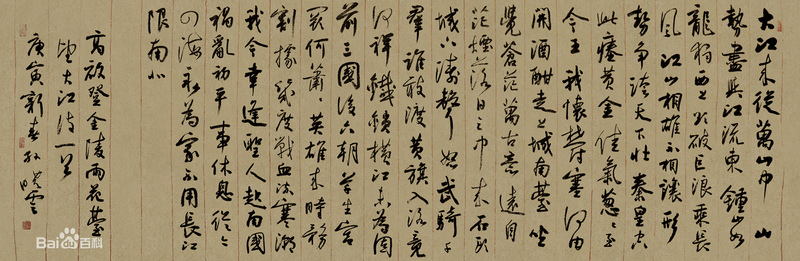 大江来從萬山中山
勢盡與江流東鍾山如
龍獨西上欲破巨浪乘長
風江山相雄不相讓形
勢爭誇天下壯秦皇空
此瘞黄金佳氣葱葱至
今王我懷鬱塞何由
開酒酣走上城南臺坐
覺蒼茫萬古意遠自
荒煙落日之中来石頭
城下濤聲怒武騎千
羣誰敢渡黄旗入洛竟
何祥鐵鎖橫江未為固
前三國後六朝草生宫
闕何蕭蕭英雄来時務
割據幾度戰血流寒潮
我今幸逢聖人起南國
禍亂初平事休息從今
四海永為家不用長江
限南北
高啟登金陵雨花臺
望大江詩一首
庚寅新春孫曉雲
Bai百科